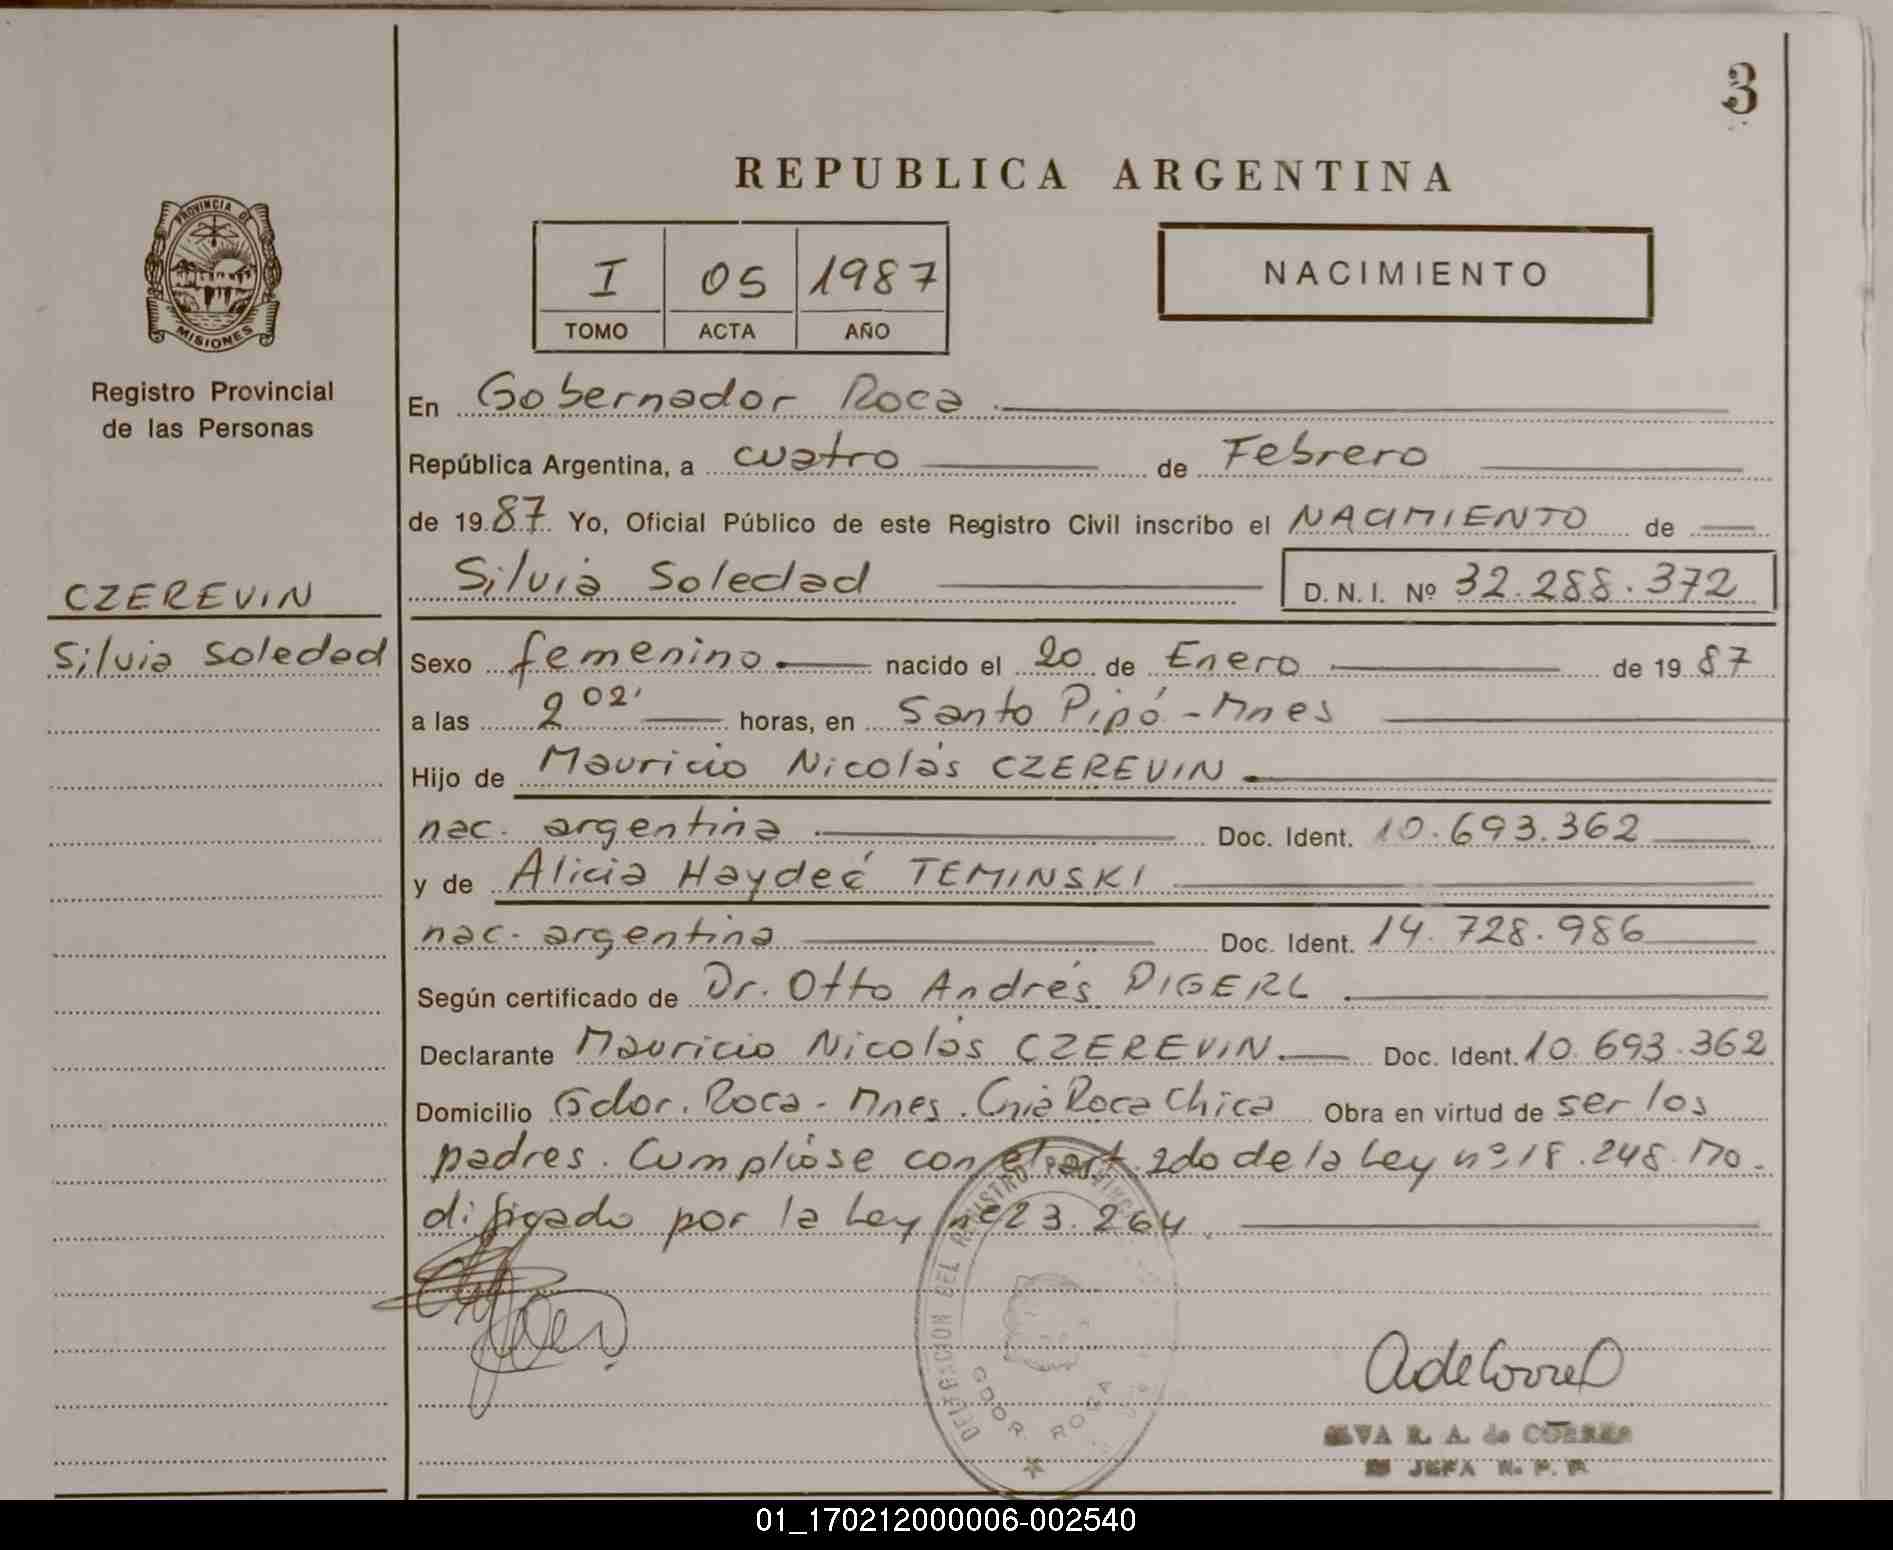 3
REPUBLICA ARGENTINA
PROVINCIA DE
MISIONES
Registro Provincial
de las Personas
I 05 1987
TOMO ACTA AÑO
NACIMIENTO
En Gobernador Roca
República Argentina, a cuatro de Febrero
de 1987 Yo, Oficial Público de este Registro Civil inscribo el NACIMIENTO de
Silvia Soledad D. N. I. Nº 32.288.372
CZEREVIN
Silvia Soledad
Sexo femenino nacido el 20 de Enero de 1987
a las 2 02' horas, en Santo Pipó - Mnes
Hijo de Mauricio Nicolás CZEREVIN
nac. argentina Doc. Ident. 10.693.362
y de Alicia Haydeé TEMINSKI
nac. argentina Doc. Ident. 14.728.986
Según certificado de Dr. Otto Andrés DIGERL
Declarante Mauricio Nicolás CZEREVIN Doc. Ident. 10.693.362
Domicilio Gdor. Roca - Mnes. Cnia Roca Chica Obra en virtud de ser los
padres. Cumplióse con el art. 2do de la Ley nº 18.248. Mo-
dificado por la Ley nº 23.264.
DELEGACION DEL REGISTRO PROVINCIAL
GDOR. ROCA
R. A. de CORREA
JEFA R. P. P.
01_170212000006-002540